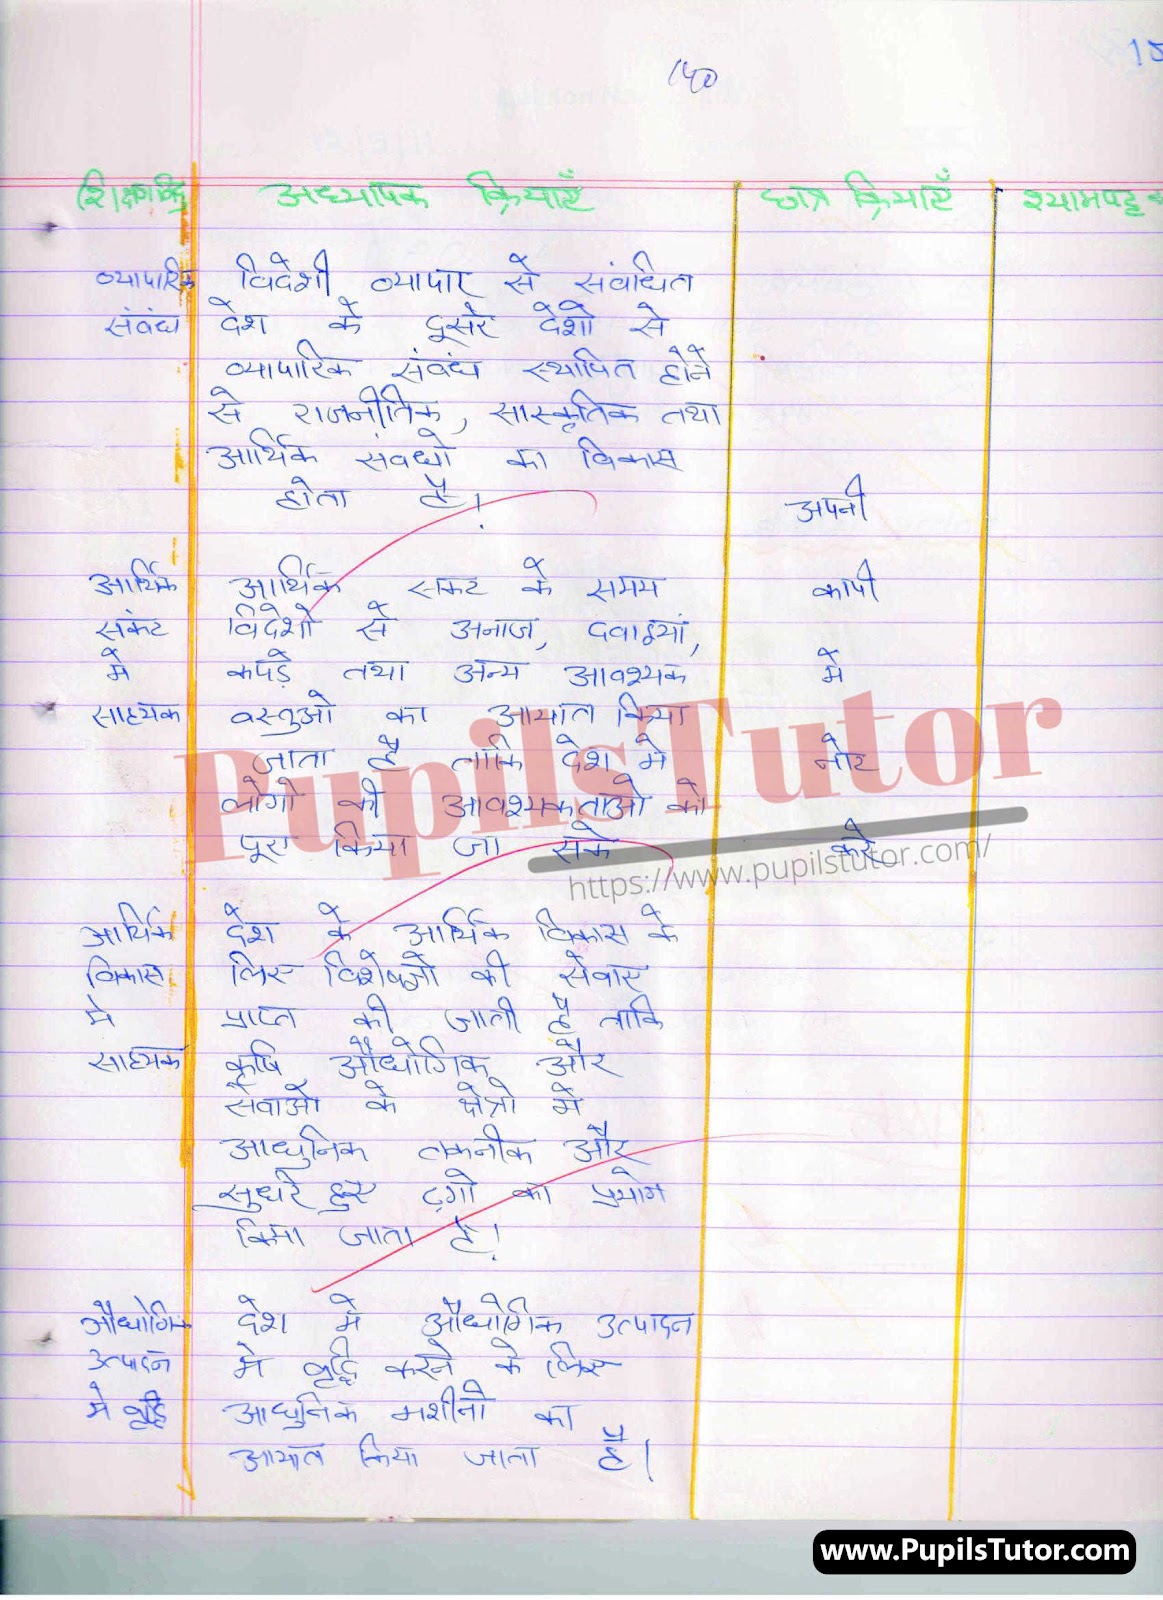 140
शिक्षण बिंदु अध्यापक क्रियाएँ छात्र क्रियाएँ श्यामपट्ट
व्यापारिक विदेशी व्यापार से संबंधित
संबंध देश के दूसरे देशो से
व्यापारिक संबंध स्थापित होने
से राजनीतिक, सास्कृतिक तथा
आर्थिक संवधो का विकास
होता है।
अपनी
आर्थिक आर्थिक सकट के समय कापी
संकट विदेशो से अनाज, दवाइयां,
मे कपड़े तथा अन्य आवश्यक मे
साहयक वस्तुओ का आयात किया
जाता है ताकि देश मे नोट
लोगो की आवश्यकताओ को
पूरा किया जा सके करे
PupilsTutor
https://www.pupilstutor.com/
आर्थिक देश के आर्थिक विकास के
विकास लिए विशेषज्ञो की सेवाए
मे प्राप्त की जाती है ताकि
साहयक कृषि औधोगिक और
सेवाओ के क्षेत्रो मे
आधुनिक तकनीक और
सुधरे हुए ढ़गो का प्रयोग
किया जाता है।
औधोगिक देश मे औधोगिक उत्पादन
उत्पादन मे वृद्धि करने के लिए
मे वृद्धि आधुनिक मशीनो का
आयात किया जाता है।
www.PupilsTutor.com